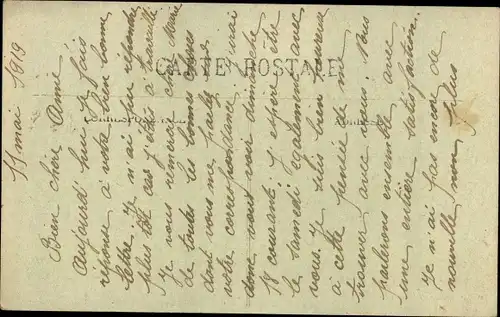 11 mai 1919
Bien chère Amie
Aujourd'hui je fais
réponse à votre bien bonne
lettre. Je n'ai pu répondre
plus tôt car j'étais à travailler
Je vous remercie chère Amie
de toutes les bonnes choses
dont vous me parlez sur
votre correspondance. J'irai
donc vous voir dimanche
18 courant. J'espère être
le samedi également avec
vous. Je suis bien heureux
à cette pensée de me
trouver avec vous. Nous
parlerons ensemble avec
une entière satisfaction.
Je n'ai pas encore de
nouvelle non plus
CARTE POSTALE
Correspondance
Adresse